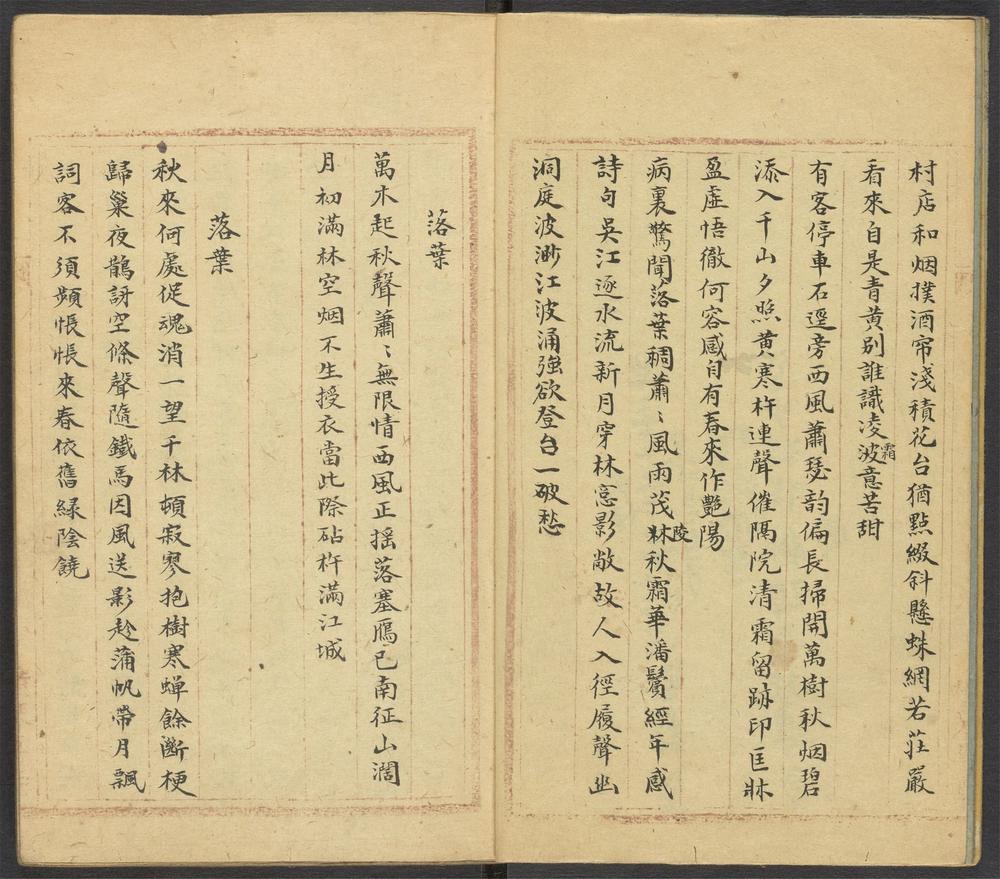 村店和烟撲酒帘淺積花台猶點綴斜懸蛛網若莊嚴
看來自是青黃別誰識凌波霜意苦甜
有客停車石逕旁西風蕭瑟韵偏長掃開萬樹秋烟碧
添入千山夕照黃寒杵連聲催隔院清霜留跡印匡牀
盈虛悟徹何容感自有春來作艷陽
病裏驚聞落葉稠蕭〻風雨茂林陵秋霜華潘鬢經年感
詩句吳江逐水流新月穿林窓影敞故人入徑履聲幽
洞庭波渺江波涌強欲登台一破愁
落葉
萬木起秋聲蕭〻無限情西風正搖落塞鴈已南征山濶
月初滿林空烟不生授衣當此際砧杵滿江城
落葉
秋來何處促魂消一望千林頓寂寥抱樹寒蟬餘斷梗
歸巢夜鵲訝空條聲隨鐵馬因風送影趁蒲帆帶月飄
詞客不須頻悵悵來春依舊緑陰饒